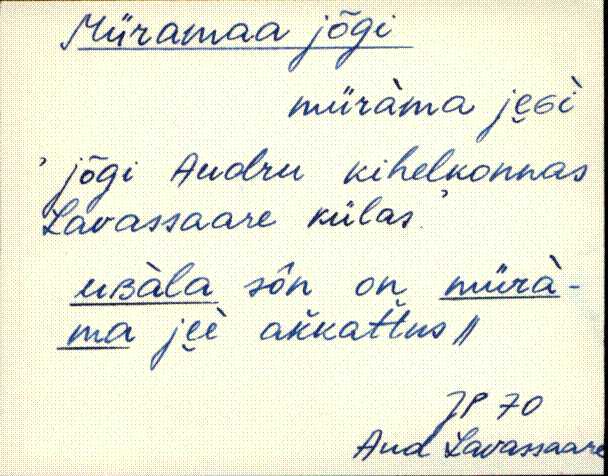 Müramaa jõgi
müràma je̮ɢì
' jõgi Audru kihelkonnas
Lavassaare külas.'
uʙàla sô̭n on mürà-
ma je̮è ak̆kat̆tus ∥
JP 70
Aud Lavassaare